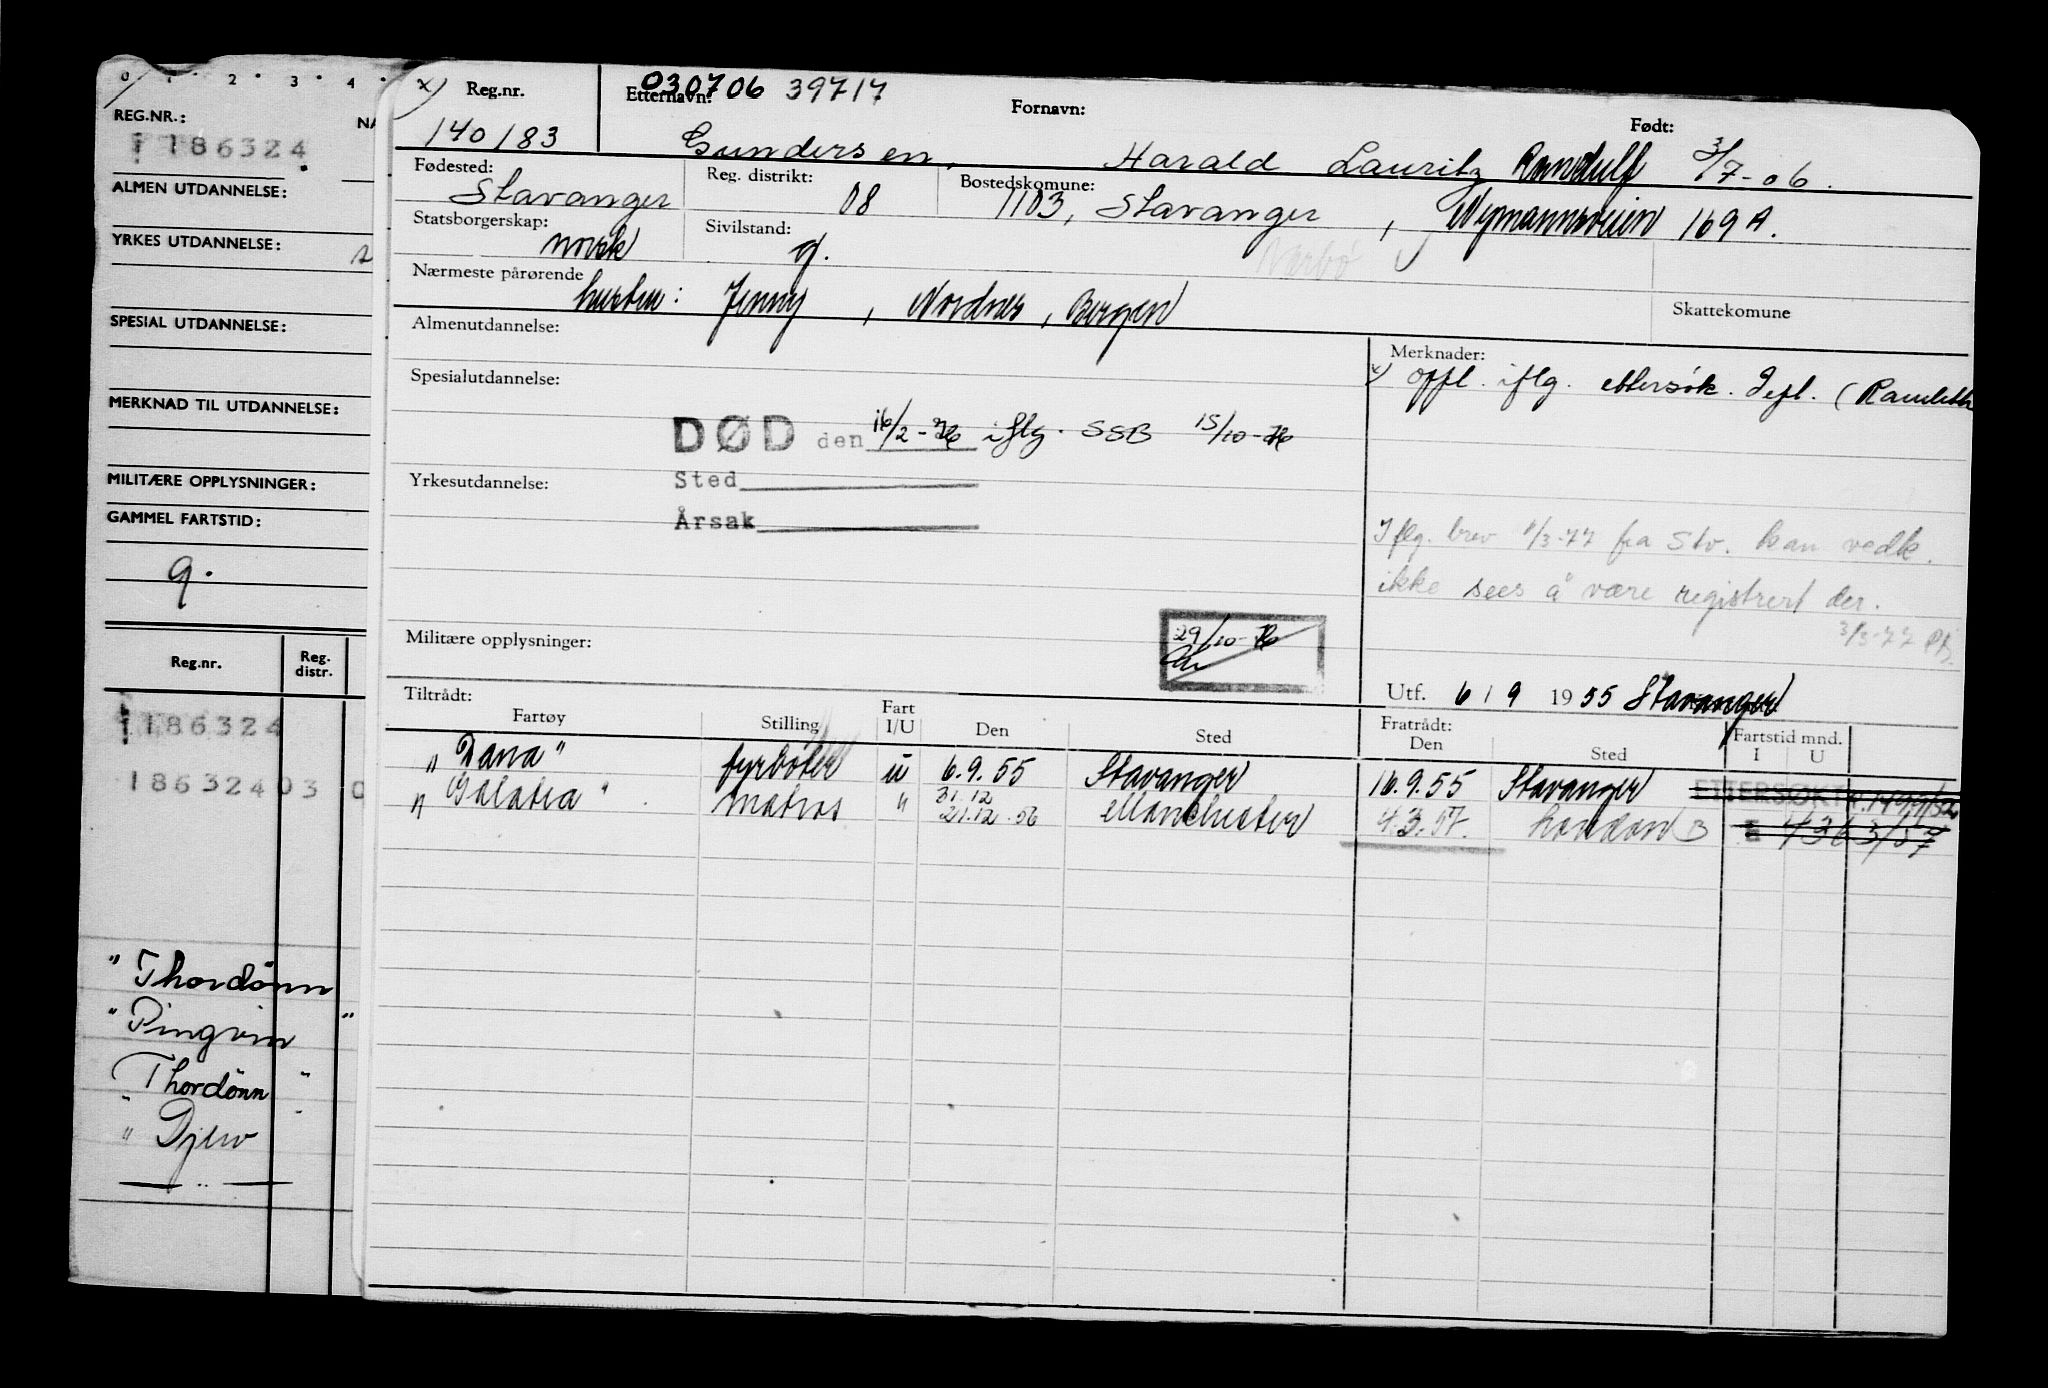 0 1 · 2 · 3 · 4 ·
REG.NR.:
NA
186324
ALMEN UTDANNELSE:
YRKES UTDANNELSE:
SPESIAL UTDANNELSE:
MERKNAD TIL UTDANNELSE:
MILITÆRE OPPLYSNINGER:
GAMMEL FARTSTID:
9.
Reg.nr. Reg. distr.
186324
186324 03 0
" Thordönn
" Pingvin "
Thordönn "
" Djerv
— .. —
x) Reg.nr. 030706 39717
Etternavn: Fornavn: Født:
140183 Gundersen, Harald Lauritz Randulf 3/7-06.
Fødested: Reg. distrikt: Bostedskomune:
Stavanger 08 1103, Stavanger, Nymannsveien 169A.
Statsborgerskap: Sivilstand:
norsk g. Nærbø
Nærmeste pårørende
hustru: Jenny, Nordnes, Bergen
Skattekomune
Almenutdannelse:
Merknader:
x) oppl. iflg. ettersøk.
Spesialutdannelse:
DØD den 16/2-76 iflg. SSB 15/10-76
Yrkesutdannelse: Sted
Årsak
Iflg. brev 1/3-77 fra Stv. kan vedk.
ikke sees å være registrert der.
3/3-77
Militære opplysninger:
29/10-76
Utf. 6 / 9 1955 Stavanger
Tiltrådt: Fratrådt:
Fartøy Stilling Fart I/U Den Sted Den Sted Fartstid mnd. I U
"Dana" fyrbøter u 6.9.55 Stavanger 16.9.55 Stavanger ETTERSØKT
31.12
"Galatea" matros " 21.12.56 Manchester 4.3.57. London B 4363/57